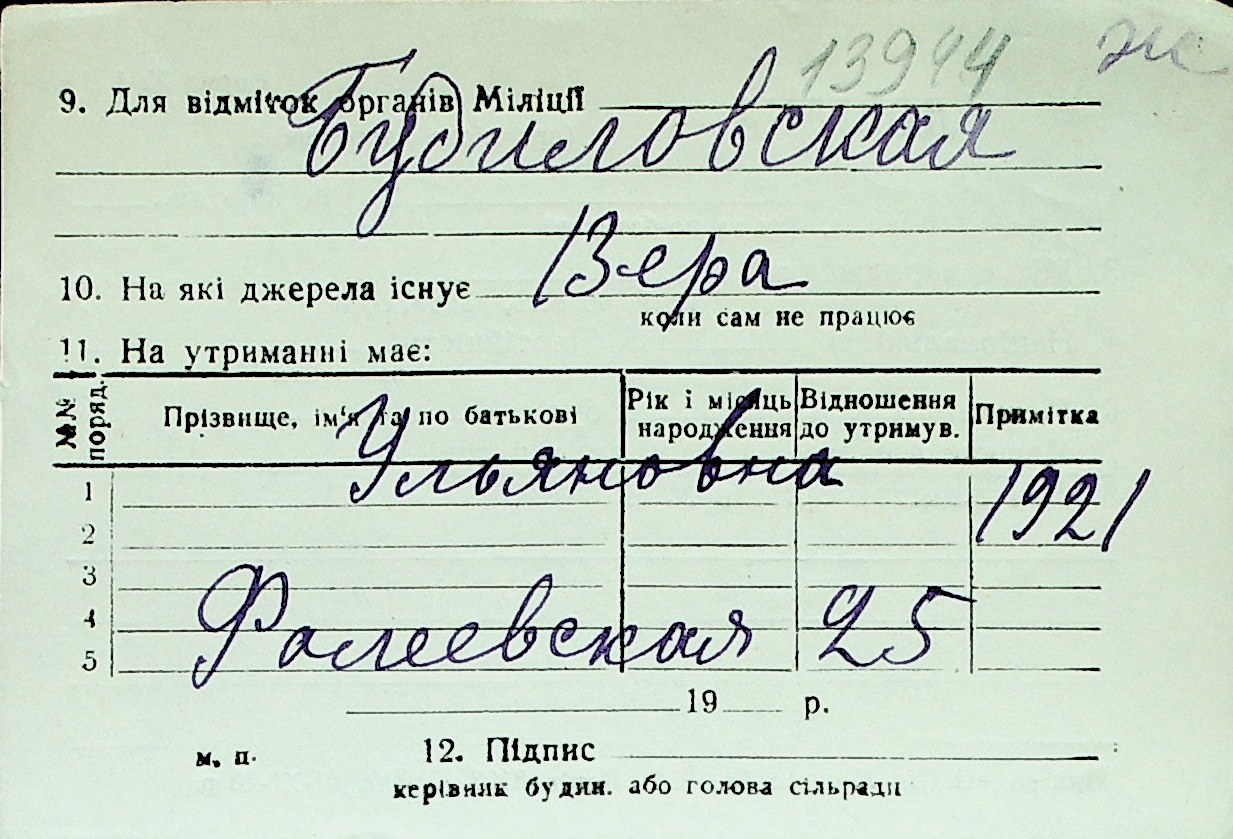 13944 ж
9. Для відміток органів Міліції
Будиловская
10. На які джерела існує Вера
коли сам не працює
11. На утриманні має:
№№ поряд. Прізвище, ім'я та по батькові Рік і місяць народження Відношення до утримув. Примітка
Ульяновна
1 1921
2
3
4 Фалеевская 25
5
19 р.
м. п. 12. Підпис
керівник будин. або голова сільради